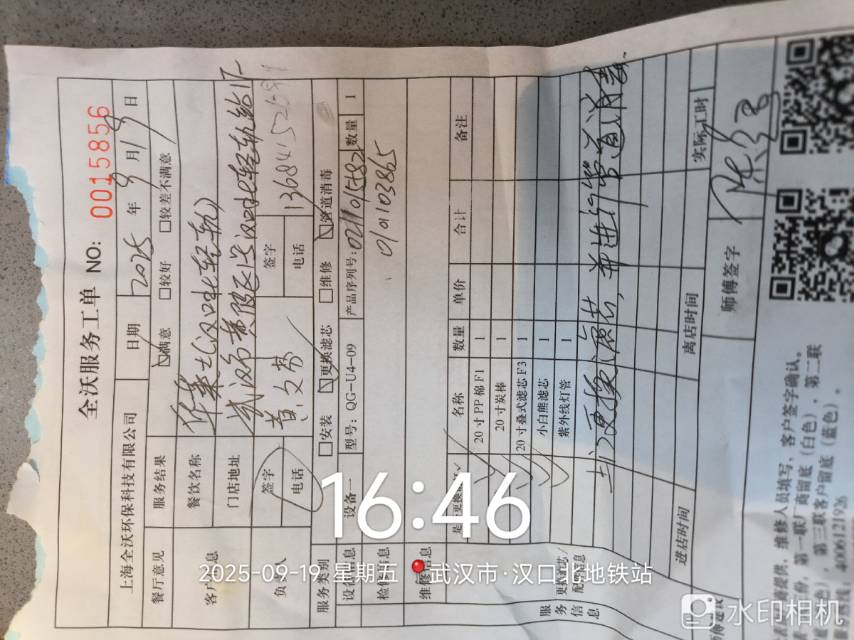 全沃服务工单 NO: 0015856
上海全沃环保科技有限公司 日期 2025 年 9 月 19 日
餐厅意见 服务结果 满意 较好 较差不满意
客户信息 餐饮名称 华莱士汉口北(轻轨)
门店地址 武汉市黄陂区汉口北轻轨站1F
负责人 签字 黄文芬 签字
电话 电话
服务类别 安装 更换滤芯 维修 管道消毒
设备信息 设备一 型号: QG-U4-09 产品序列号: 数量 1
检修信息 010103865
维修信息
服务信息 更换滤芯/配件信息 名称 数量 单价 合计 备注
20寸PP棉F1 1
20寸炭棒 1
20寸叠式滤芯F3 1
小白熊滤芯 1
紫外线灯管 1
更换滤芯,并进行管道消毒.
进店时间 离店时间 实际工时
师傅签字
维修人员填写,客户签字确认。
第一联厂商留底(白色),第二联
第三联客户留底(蓝色)。
4006121926
16:46
2025-09-19 星期五 武汉市·汉口北地铁站
水印相机